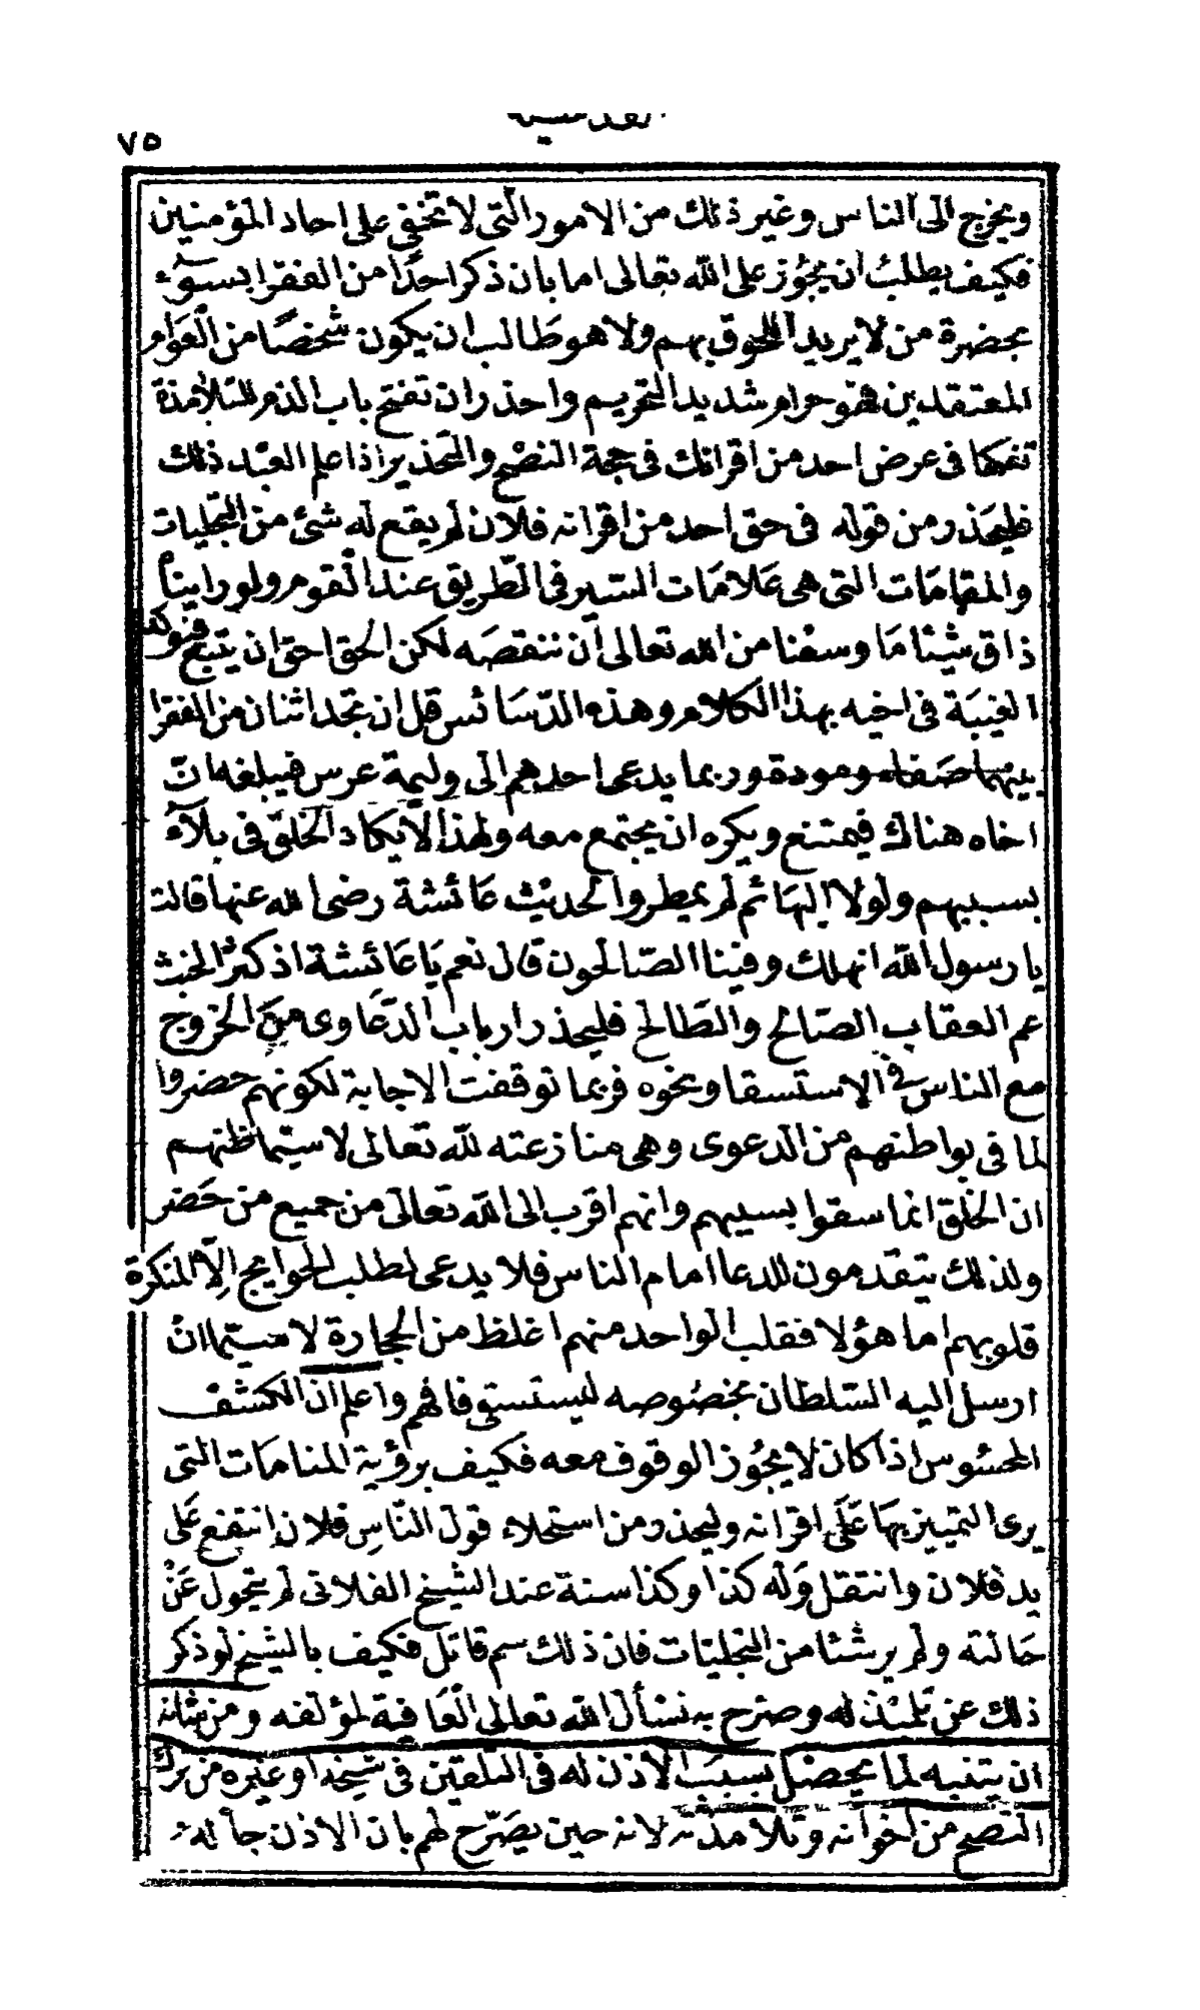 ٧٥
ويخرج الى الناس وغير ذلك من الامور التى لا تخفى على احاد المؤمنين
فكيف يطلب ان يجوز على الله تعالى اما بان ذكر احدا من الفقرا بسوء
بحضرة من لا يريد اللحوق بهم ولا هو طالب ان يكون شخصا من العوام
المعتقدين فهو حرام شديد التحريم واحذر ان تفتح باب الذم للتلامذة
تفكها فى عرض احد من اقرانك فى حجة النصح والتحذير اذا علم العبد ذلك
فليحذر من قوله فى حق احد من اقرانه فلان لم يقع له شئ من التجليات
والمقامات التى هى علامات السير فى الطريق عند القوم ولو راينا
ذاق شيئا ما وسعنا من الله تعالى ان ننقصه لكن الحق احق ان يتبع
الغيبة فى اخيه بهذا الكلام وهذه الدسائس قل ان تجد اثنان من الفقرا
بينهما صفاء ومودة وربما يدعى احدهم الى وليمة عرس فيبلغه ان
اخاه هناك فيمتنع ويكره ان يجتمع معه ولهذا لا يكاد الخلق فى بلاء
بسببهم ولولا البهائم لم يمطروا لحديث عائشة رضى الله عنها قالت
يا رسول الله انهلك وفينا الصالحون قال نعم يا عائشة اذ كثر الخبث
عم العقاب الصالح والطالح فليحذر ارباب الدعاوى من الخروج
مع الناس فى الاستسقا ونحوه فربما توقفت الاجابة لكونهم حضروا
لما فى بواطنهم من الدعوى وهى منازعته لله تعالى لا سيما ظنهم
ان الخلق انما سقوا بسببهم وانهم اقرب الى الله تعالى من جميع من حضر
ولذلك يتقدمون للدعا امام الناس فلا يدعى لطلب الحوايج الا المنكرة
قلوبهم اما هؤلا فقلب الواحد منهم اغلظ من الحجارة لا سيما ان
ارسل اليه السلطان بخصوصه ليستسقى فافهم واعلم ان الكشف
المحسوس اذا كان لا يجوز الوقوف معه فكيف برؤية المنامات التى
يرى التمييز بها على اقرانه وليحذر من استحلاء قول الناس فلان انتفع على
يد فلان وانتقل وله كذا وكذا سنة عند الشيخ الفلانى لم يتحول عن
حالته ولم ير شئا من التجليات فان ذلك سم قاتل فكيف بالشيخ لو ذكر
ذلك عن تلميذ له وصرح به نسأل الله تعالى العافية لمؤلفه ومن شانه
ان يتنبه لما يحصل بسبب الاذن له فى التلقين فى شيخه او غيره من ترك
النصح من اخوانه وتلامذته لانه حين يصرح لهم بان الاذن جاء له